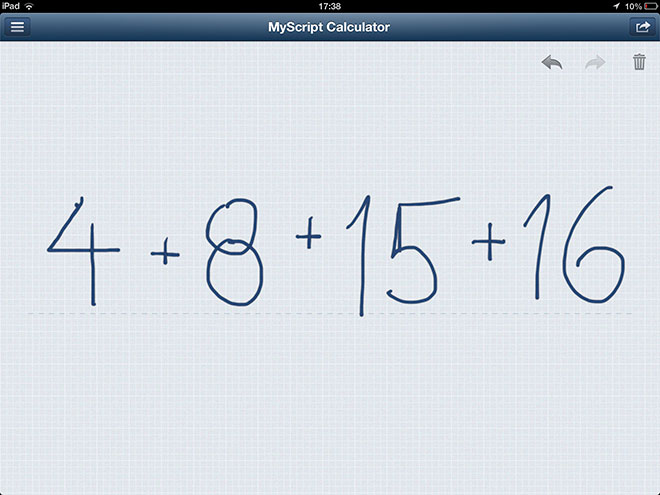 iPad 17:38 10%
MyScript Calculator
4 + 8 + 15 + 16